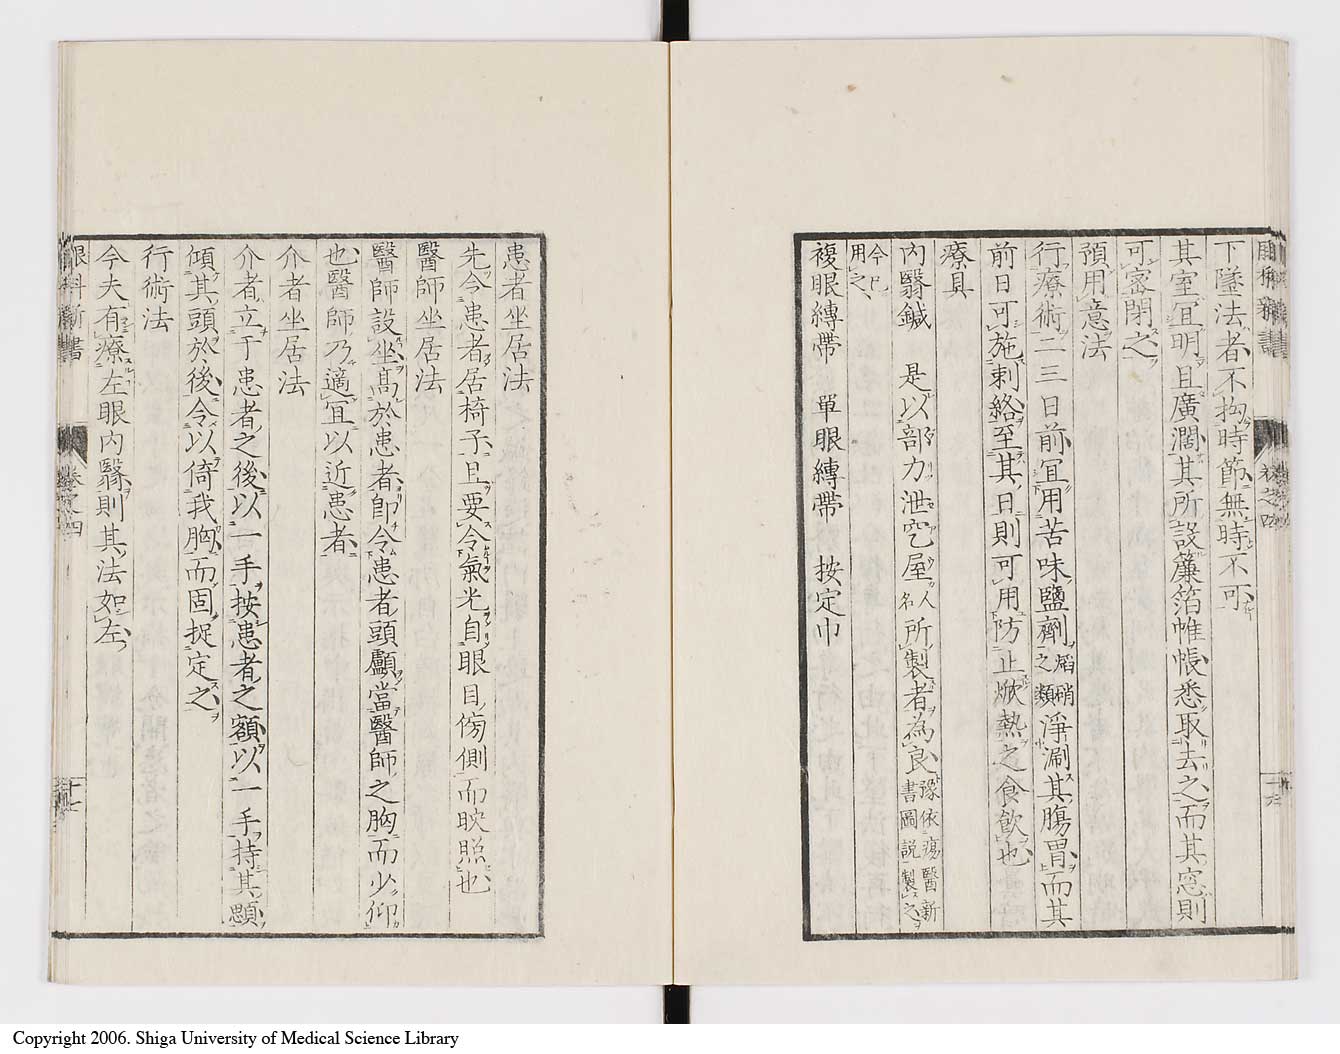 眼科新書
卷之四
下墜法者不拘時節無時不可
其室宜明且廣濶其所設簾箔帷帳悉取去之而其窓則
可密閉之
預用意法
行療術二三日前宜用苦味鹽劑焰硝之類淨漱其腸胃而其
前日可施刺絡至其日則可用防止焮熱之食飲也
療具
內翳鍼 是以部力泄空屋人名所製者為良豫依瘍醫新書圖説製之
今已用之
複眼縛帶 單眼縛帶 按定巾
患者坐居法
先令患者居椅子且要令氣光自眼目傍側而映照也
醫師坐居法
醫師設坐高於患者卽令患者頭顱當醫師之胸而少仰
也醫師乃適宜以近患者
介者坐居法
介者立于患者之後以一手按患者之額以一手持其顋
傾其頭於後令以倚我胸而固捉定之
行術法
今夫有療左眼內翳則其法如左
眼科新書
卷之四
十七
Copyright 2006. Shiga University of Medical Science Library